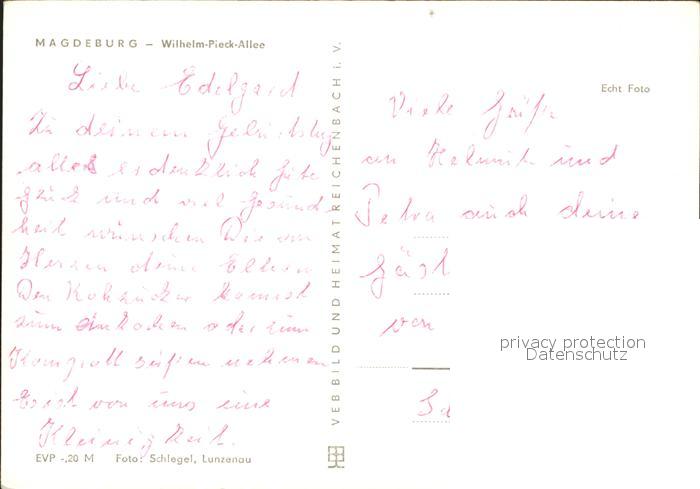 MAGDEBURG – Wilhelm-Pieck-Allee
Liebe Edelgard
Zu deinem Geburtstag
alles erdenklich gute
Glück und viel Gesund-
heit wünschen Dir von
Herzen deine Eltern
Den Rohzucker kannst
zum Einkochen oder zum
Kompott süßen nehmen
Erst von uns eine
Kleinigkeit.
EVP -,20 M Foto: Schlegel, Lunzenau
VEB BILD UND HEIMAT REICHENBACH i. V.
Echt Foto
Viele Grüße
an Helmut und
Petra auch deine
Gäst
von
privacy protection
Datenschutz